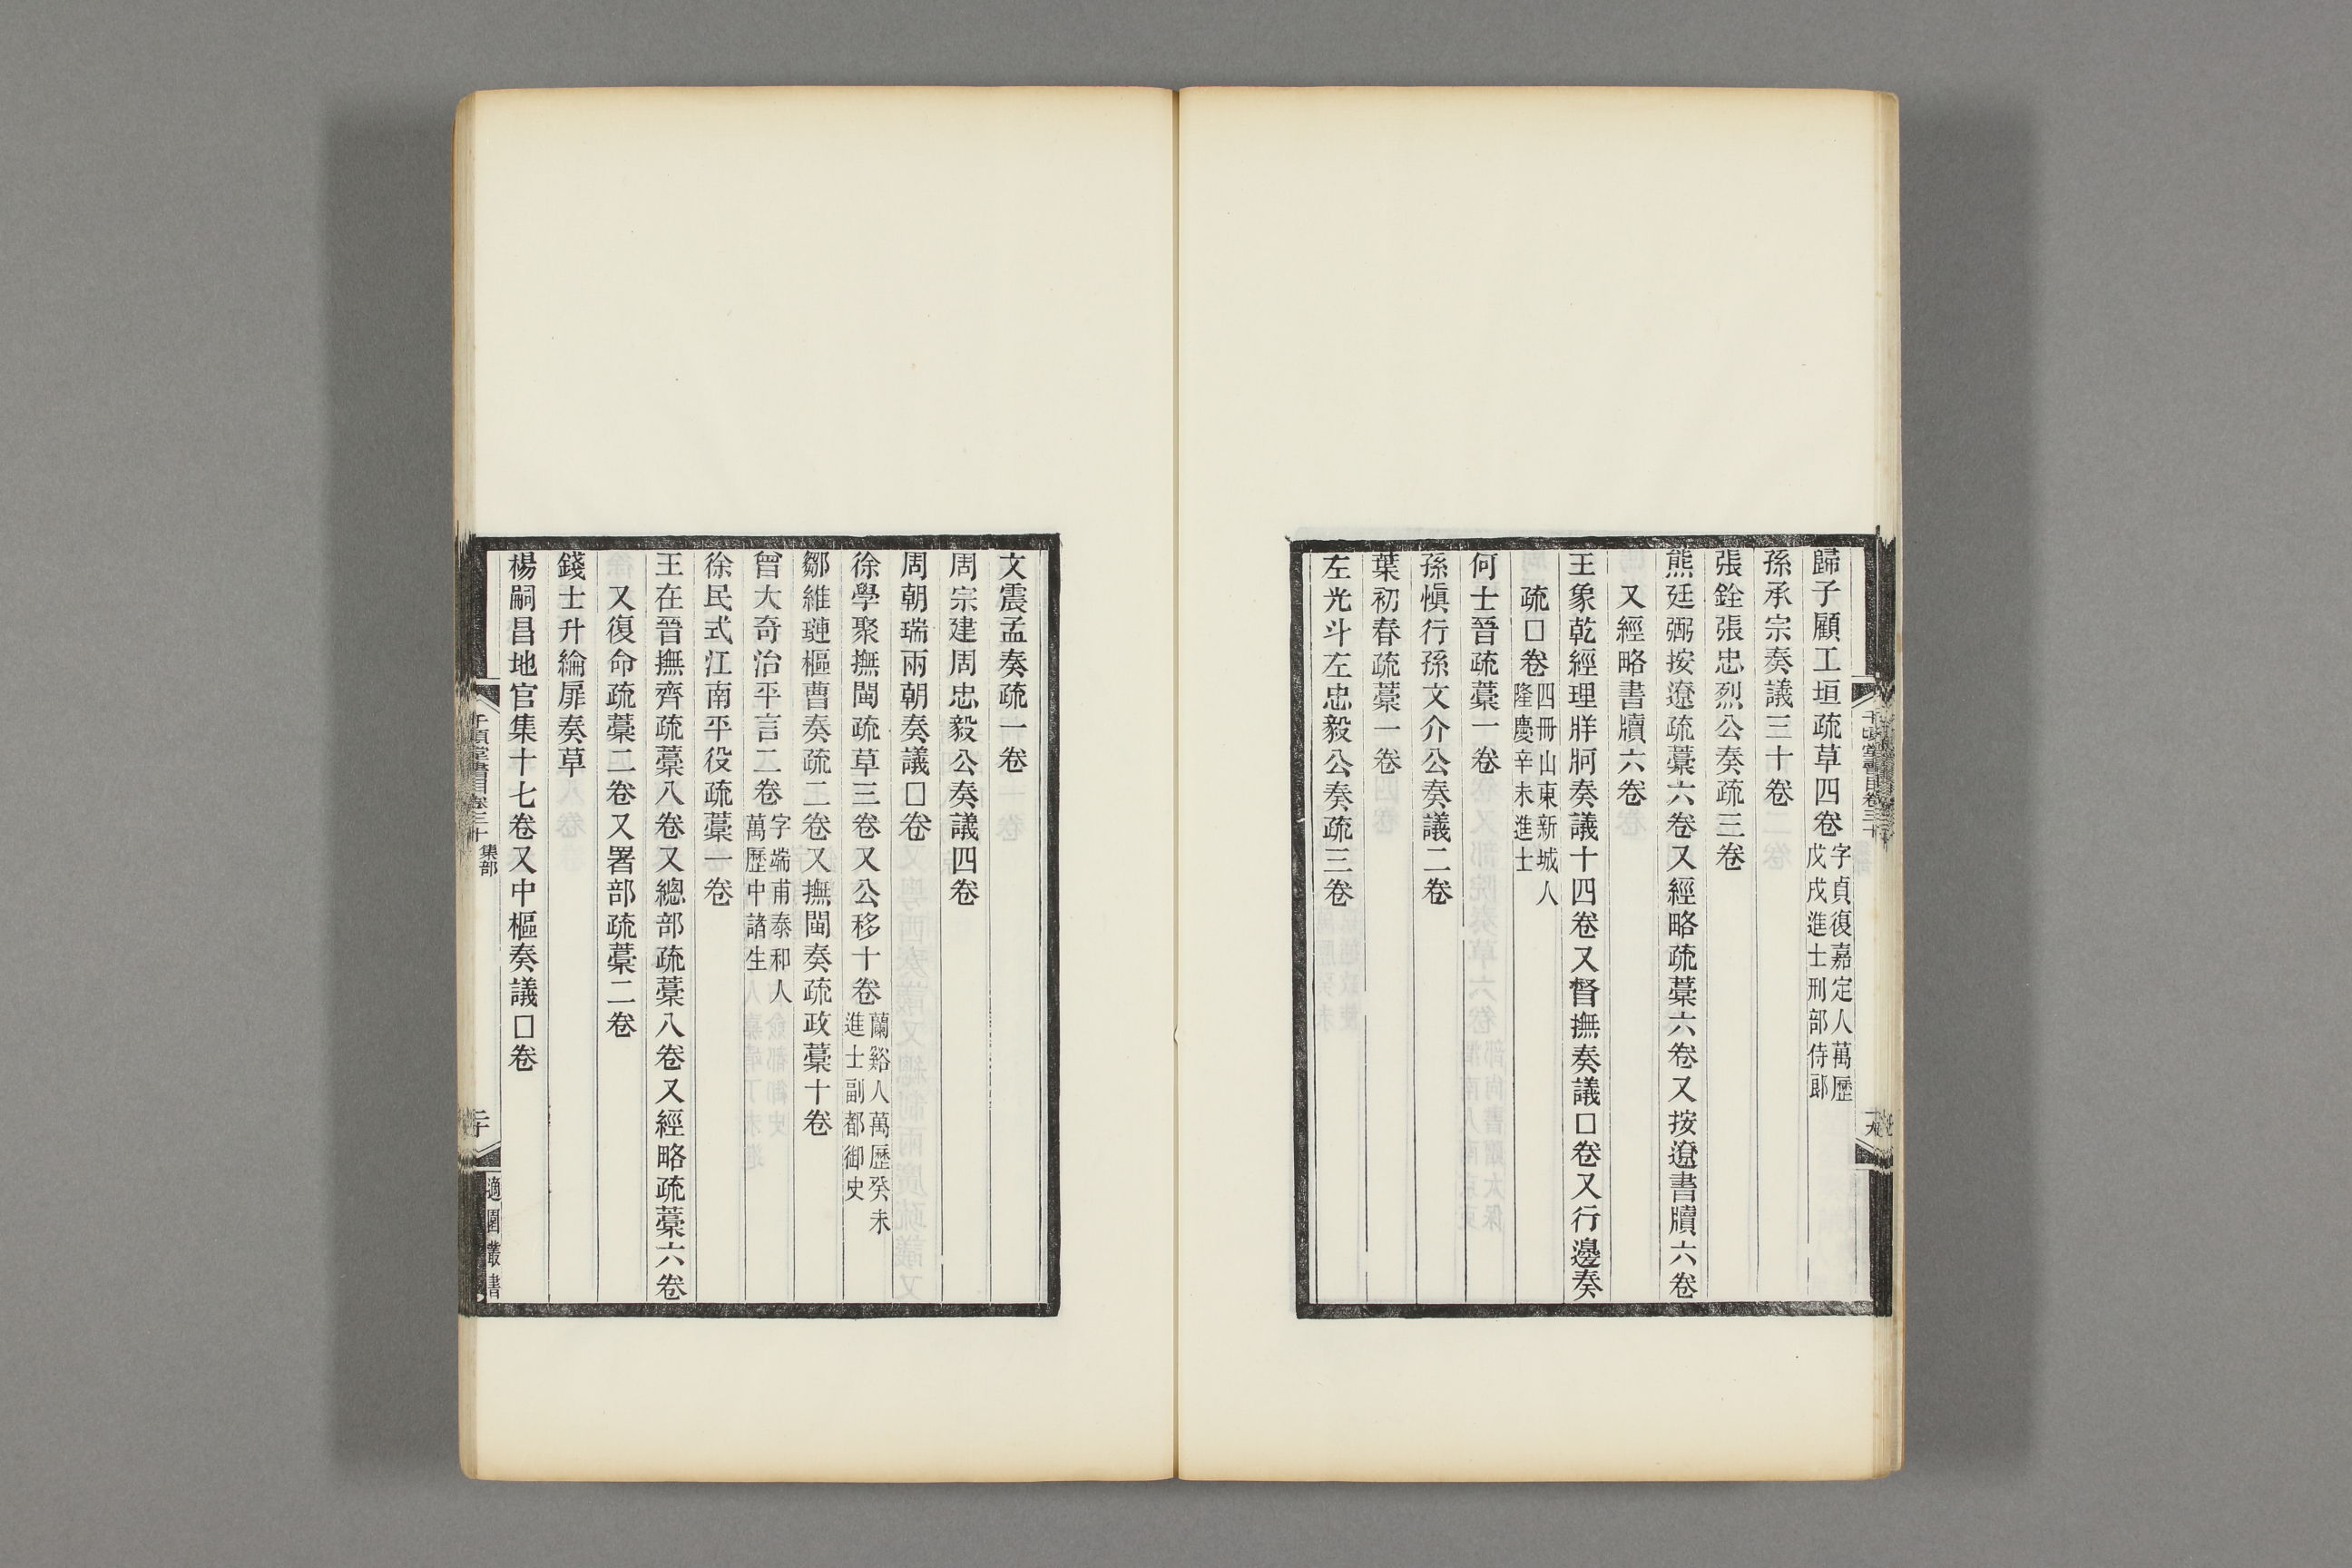 歸子顧工垣疏草四卷字貞復嘉定人萬歷戊戌進士刑部侍郎
孫承宗奏議三十卷
張銓張忠烈公奏疏三卷
熊廷弼按遼疏藳六卷又經略疏藳六卷又按遼書牘六卷
又經略書牘六卷
王象乾經理牂牁奏議十四卷又督撫奏議□卷又行邊奏
疏□卷四冊山東新城人隆慶辛未進士
何士晉疏藳一卷
孫愼行孫文介公奏議二卷
葉初春疏藳一卷
左光斗左忠毅公奏疏三卷
文震孟奏疏一卷
周宗建周忠毅公奏議四卷
周朝瑞兩朝奏議□卷
徐學聚撫閩疏草三卷又公移十卷蘭谿人萬歷癸未進士副都御史
鄒維璉樞曹奏疏二卷又撫閩奏疏政藳十卷
曾大奇治平言二卷字端甫泰和人萬歷中諸生
徐民式江南平役疏藳一卷
王在晉撫齊疏藳八卷又總部疏藳八卷又經略疏藳六卷
又復命疏藳二卷又署部疏藳二卷
錢士升綸扉奏草
楊嗣昌地官集十七卷又中樞奏議□卷
千頃堂書目卷三十 集部
二十
適園叢書